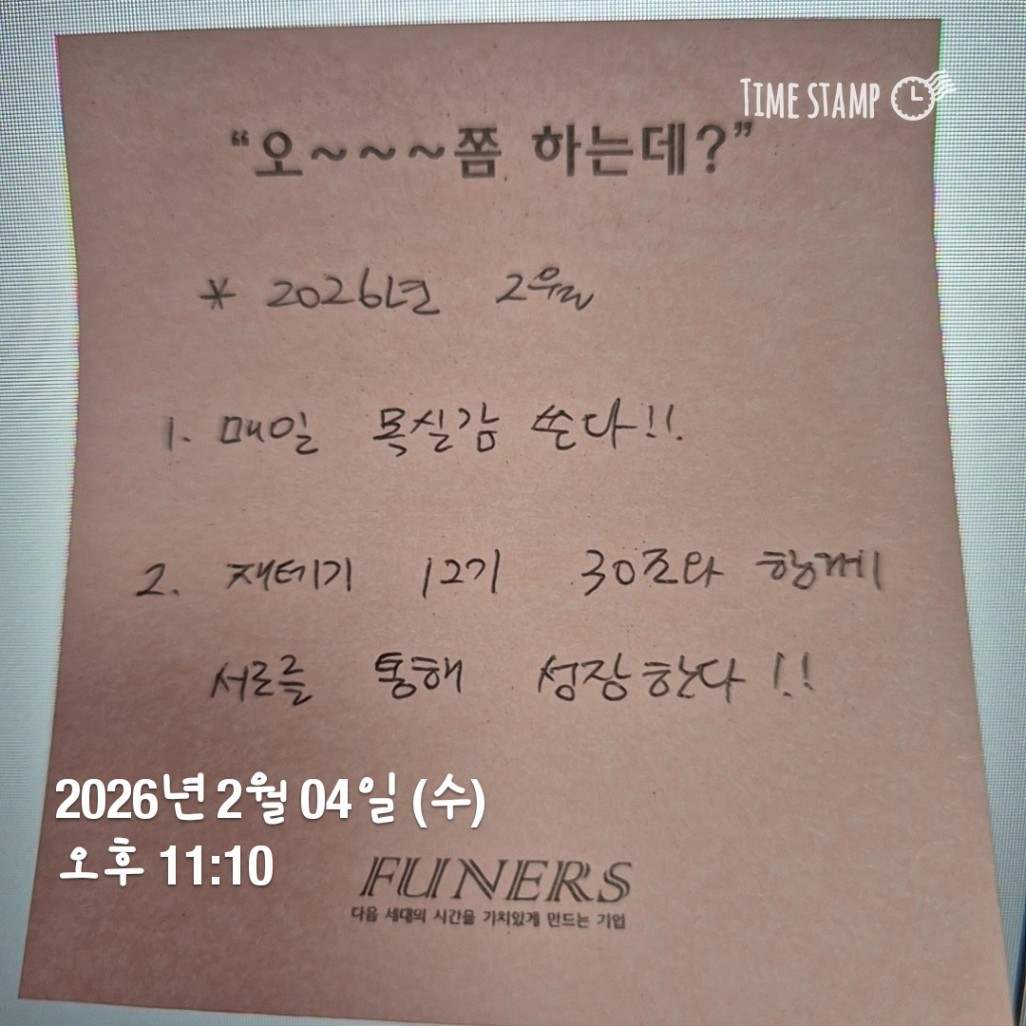 TIME STAMP
“오~~~쫌 하는데?”
* 2026년 2월
1. 매일 목실감 쓴다!!
2. 재테기 12기 30조와 함께
서로를 통해 성장한다!!
2026년 2월 04일 (수)
오후 11:10
FUNERS
다음 세대의 시간을 가치있게 만드는 기업